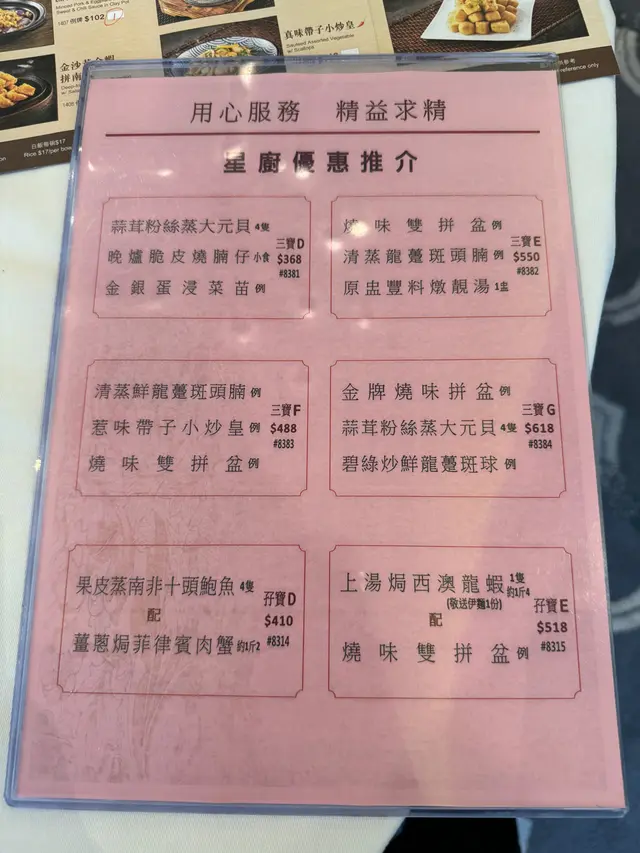 Minced Pork & Eggplant
Sweet & Chili Sauce in Clay Pot
1407 例牌 $102
真味帶子小炒皇
Sauteed Assorted Vegetable
w/ Scallops
拼南
1405
日耶每碗$17
Rice $17/per bow
reference only
用心服務 精益求精
星廚優惠推介
蒜茸粉絲蒸大元貝 4隻
晚爐脆皮燒腩仔 小食
金銀蛋浸菜苗 例
三寶D
$368
#8381
燒味雙拼盆 例
清蒸龍躉斑頭腩 例
原盅豐料燉靚湯 1盅
三寶E
$550
#8382
清蒸鮮龍躉斑頭腩 例
惹味帶子小炒皇 例
燒味雙拼盆 例
三寶F
$488
#8383
金牌燒味拼盆 例
蒜茸粉絲蒸大元貝 4隻
碧綠炒鮮龍躉斑球 例
三寶G
$618
#8384
果皮蒸南非十頭鮑魚 4隻
配
薑蔥焗菲律賓肉蟹 約1斤2
孖寶D
$410
#8314
上湯焗西澳龍蝦 1隻 約1斤4
(敬送伊麵1份)
配
燒味雙拼盆 例
孖寶E
$518
#8315